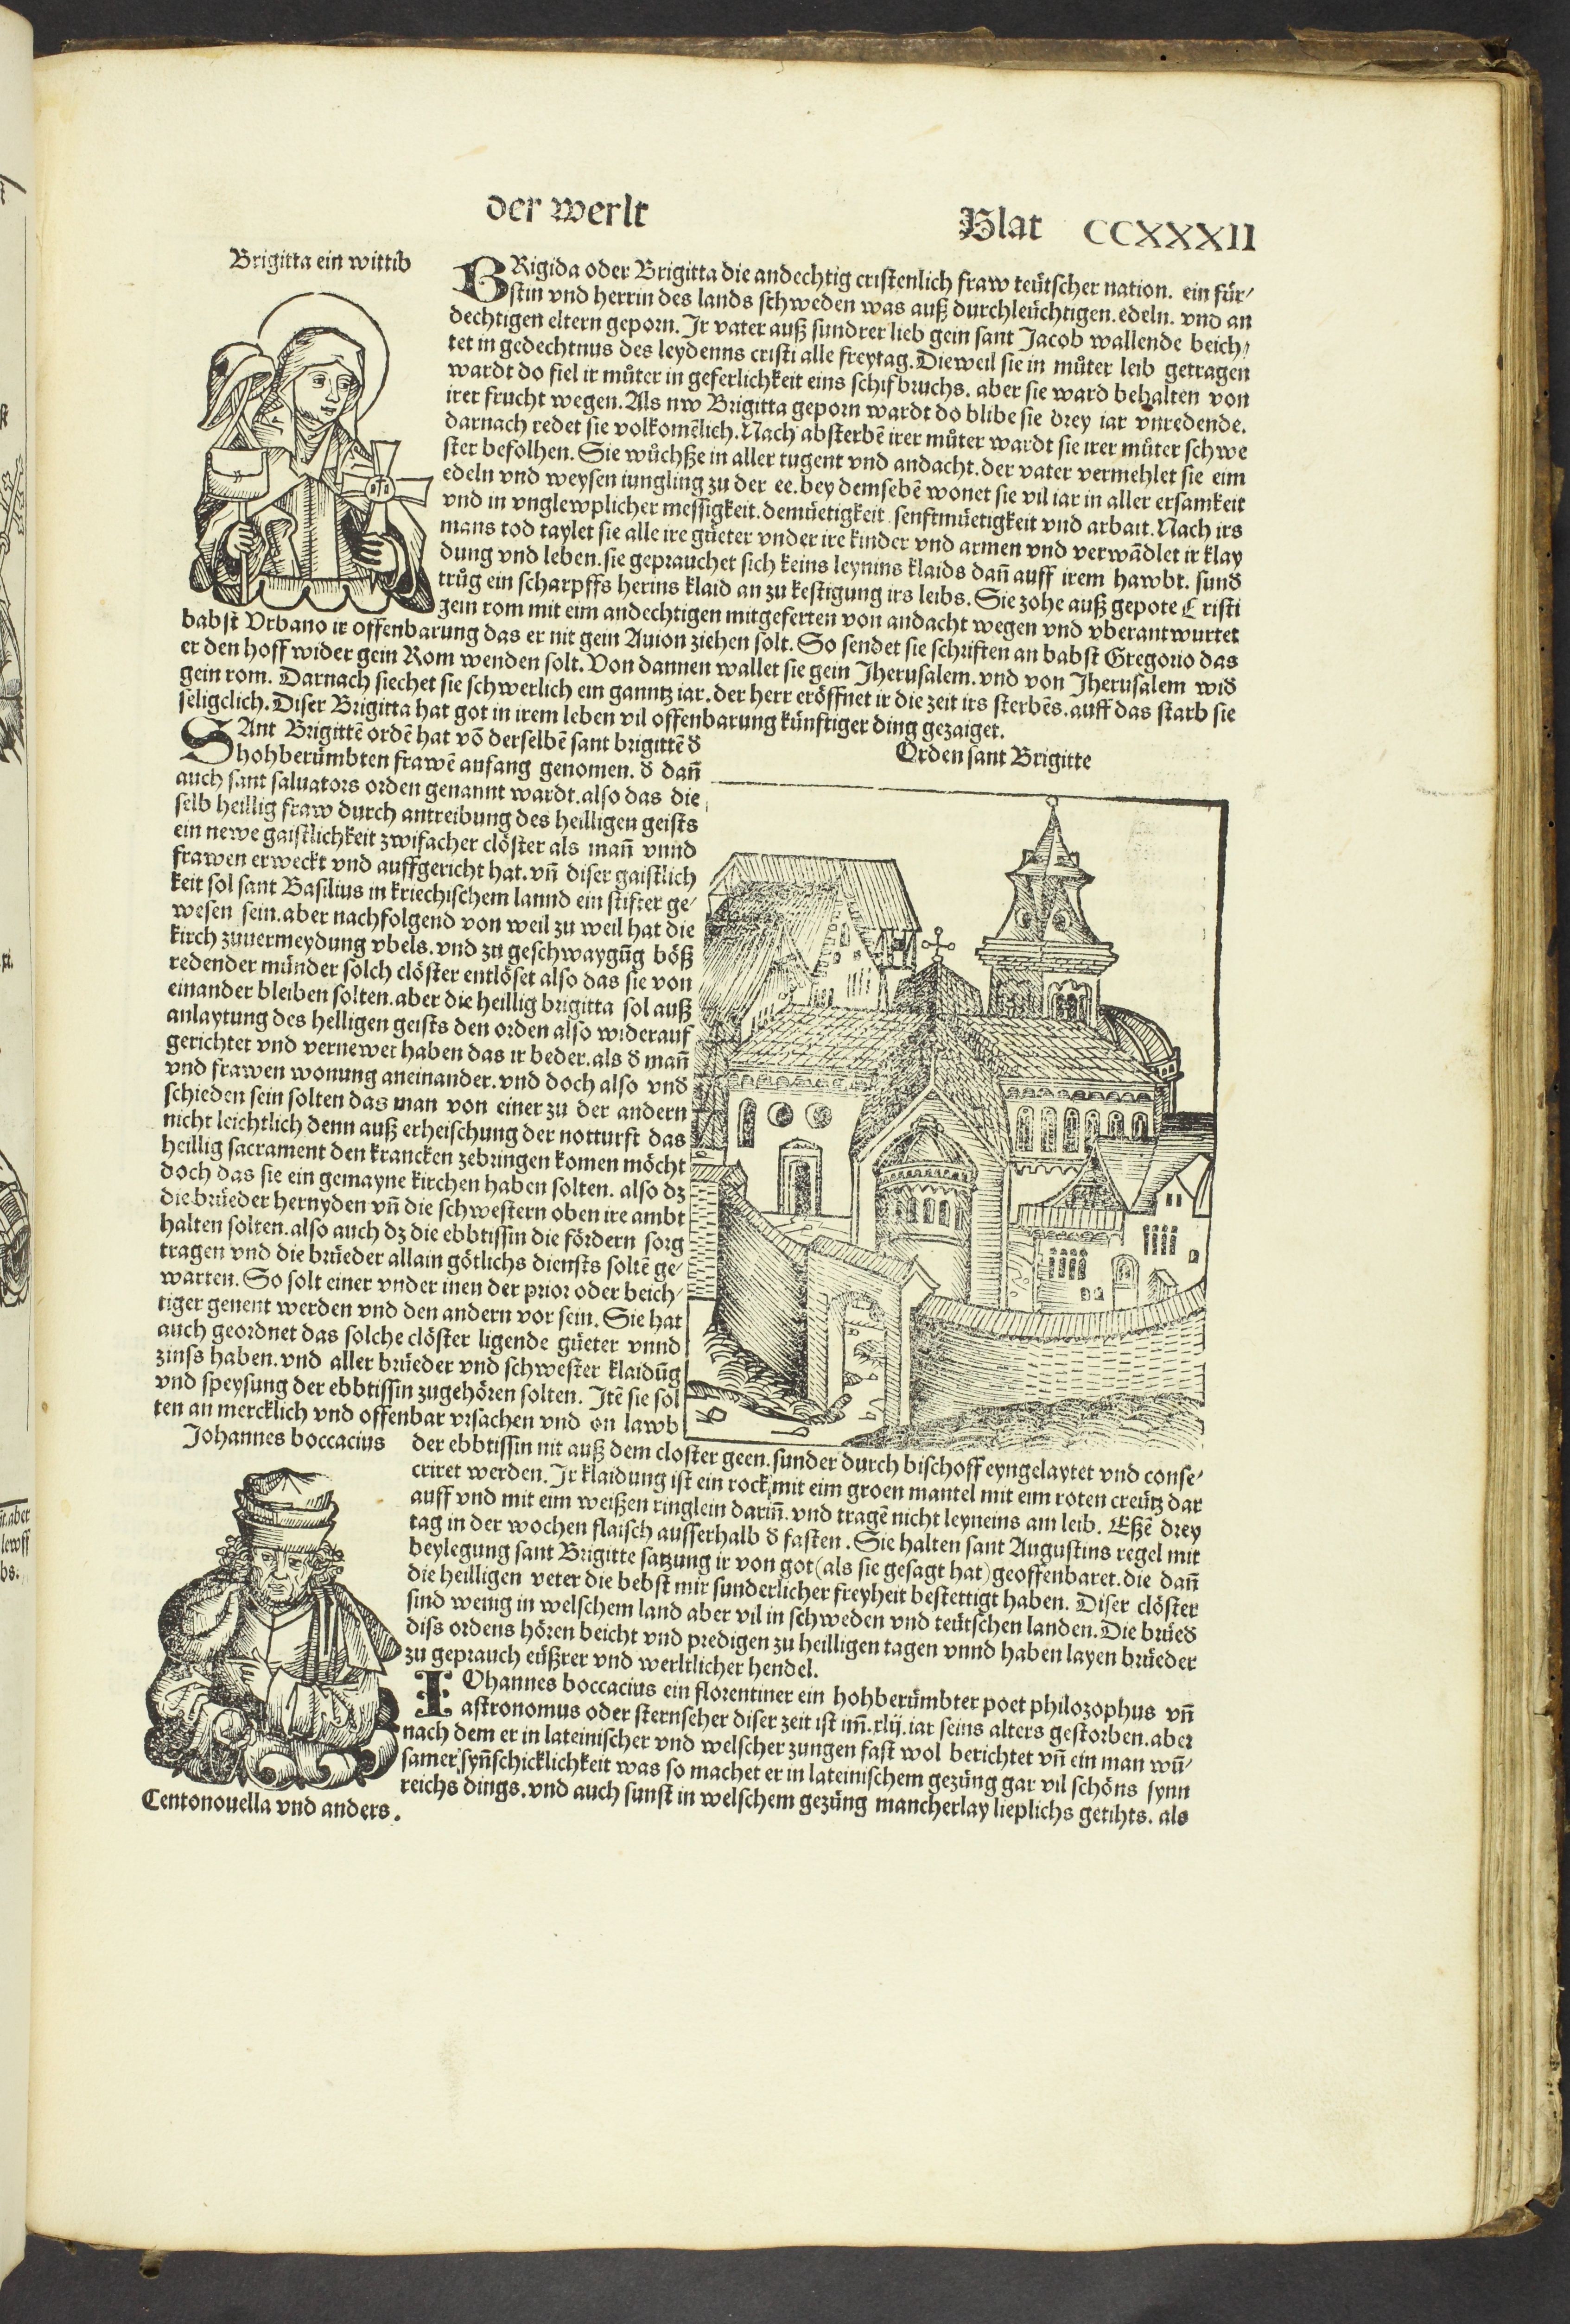 der werlt
Blat CCXXXII
Brigitta ein wittib
BRigida oder Brigitta die andechtig cristenlich fraw teütscher nation. ein für⸗
stin vnd herrin des lands schweden was auß durchleüchtigen. edeln. vnd an
dechtigen eltern geporn. Ir vater auß sundrer lieb gein sant Jacob wallende beich⸗
tet in gedechtnus des leydenns cristi alle freytag. Dieweil sie in můter leib getragen
wardt do fiel ir můter in geferlichkeit eins schifbruchs. aber sie ward behalten von
irer frucht wegen. Als nw Brigitta geporn wardt do blibe sie drey iar vnredende.
darnach redet sie volkomēlich. Nach absterbē irer můter wardt sie irer můter schwe
ster befolhen. Sie wůchße in aller tugent vnd andacht. der vater vermehlet sie eim
edeln vnd weysen iungling zu der ee. bey demselbē wonet sie vil iar in aller ersamkeit
vnd in vnglewplicher messigkeit. demüetigkeit. senftmüetigkeit vnd arbait. Nach irs
mans tod taylet sie alle ire güeter vnder ire kinder vnd armen vnd verwādlet ir klay
dung vnd leben. sie geprauchet sich keins leynins klaids dañ auff irem hawbt. sund
trůg ein scharpffs herins klaid an zu kestigung irs leibs. Sie zohe auß gepote Cristi
gein rom mit eim andechtigen mitgeferten von andacht wegen vnd vberantwurtet
babst Vrbano ir offenbarung das er nit gein Auion ziehen solt. So sendet sie schriften an babst Gregorio das
er den hoff wider gein Rom wenden solt. Von dannen wallet sie gein Jherusalem. vnd von Jherusalem wid
gein rom. Darnach siechet sie schwerlich ein ganntz iar. der herr eröffnet ir die zeit irs sterbēs. auff das starb sie
seligclich. Diser Brigitta hat got in irem leben vil offenbarung künftiger ding gezaiget.
Orden sant Brigitte
SAnt Brigittē ordē hat vō derselbē sant brigittē d
hohberümbten frawē anfang genomen. d dañ
auch sant saluators orden genannt wardt. also das die
selb heillig fraw durch antreibung des heilligen geists
ein newe gaistlichkeit zwifacher clöster als mañ vnnd
frawen erweckt vnd auffgericht hat. vñ diser gaistlich
keit sol sant Basilius in kriechischem lannd ein stifter ge⸗
wesen sein. aber nachfolgend von weil zu weil hat die
kirch zuuermeydung vbels. vnd zu geschwaygūg böß
redender münder solch clöster entlöset also das sie von
einander bleiben solten. aber die heillig brigitta sol auß
anlaytung des helligen geists den orden also widerauf
gerichtet vnd vernewet haben das ir beder. als d mañ
vnd frawen wonung aneinander. vnd doch also vnd
schieden sein solten das man von einer zu der andern
nicht leichtlich denn auß erheischung der notturft das
heillig sacrament den krancken zebringen komen möcht
doch das sie ein gemayne kirchen haben solten. also dz
die brüeder hernyden vñ die schwestern oben ire ambt
halten solten. also auch dz die ebbtissin die fördern sorg
tragen vnd die brüeder allain götlichs diensts soltē ge⸗
warten. So solt einer vnder inen der prior oder beich⸗
tiger genent werden vnd den andern vor sein. Sie hat
auch geordnet das solche clöster ligende güeter vnnd
zinß haben. vnd aller brüeder vnd schwester klaidūg
vnd speysung der ebbtissin zugehören solten. Itē sie sol
ten an mercklich vnd offenbar vrsachen vnd on lawb
der ebbtissin nit auß dem closter geen. sunder durch bischoff eyngelaytet vnd conse⸗
criret werden. Ir klaidung ist ein rock mit eim groen mantel mit eim roten creütz dar
auff vnd mit eim weißen ringlein dariñ. vnd tragē nicht leyneins am leib. Eßē drey
tag in der wochen flaisch ausserhalb d fasten. Sie halten sant Augustins regel mit
beylegung sant Brigitte satzung ir von got (als sie gesagt hat) geoffenbaret. die dañ
die heilligen veter die bebst mir sunderlicher freyheit bestettigt haben. Diser clöster
sind wenig in welschem land aber vil in schweden vnd teütschen landen. Die brüed
diss ordens hören beicht vnd predigen zu heilligen tagen vnnd haben layen brüeder
zu geprauch eüßrer vnd werltlicher hendel.
Johannes boccacius
IOhannes boccacius ein florentiner ein hohberümbter poet philozophus vñ
astronomus oder sternseher diser zeit ist im̄. xlij. iar seins alters gestorben. aber
nach dem er in lateinischer vnd welscher zungen fast wol berichtet vñ ein man wū⸗
samer syñschicklichkeit was so machet er in lateinischem gezüng gar vil schöns synn
reichs dings. vnd auch sunst in welschem gezüng mancherlay lieplichs getihts. als
Centonouella vnd anders.